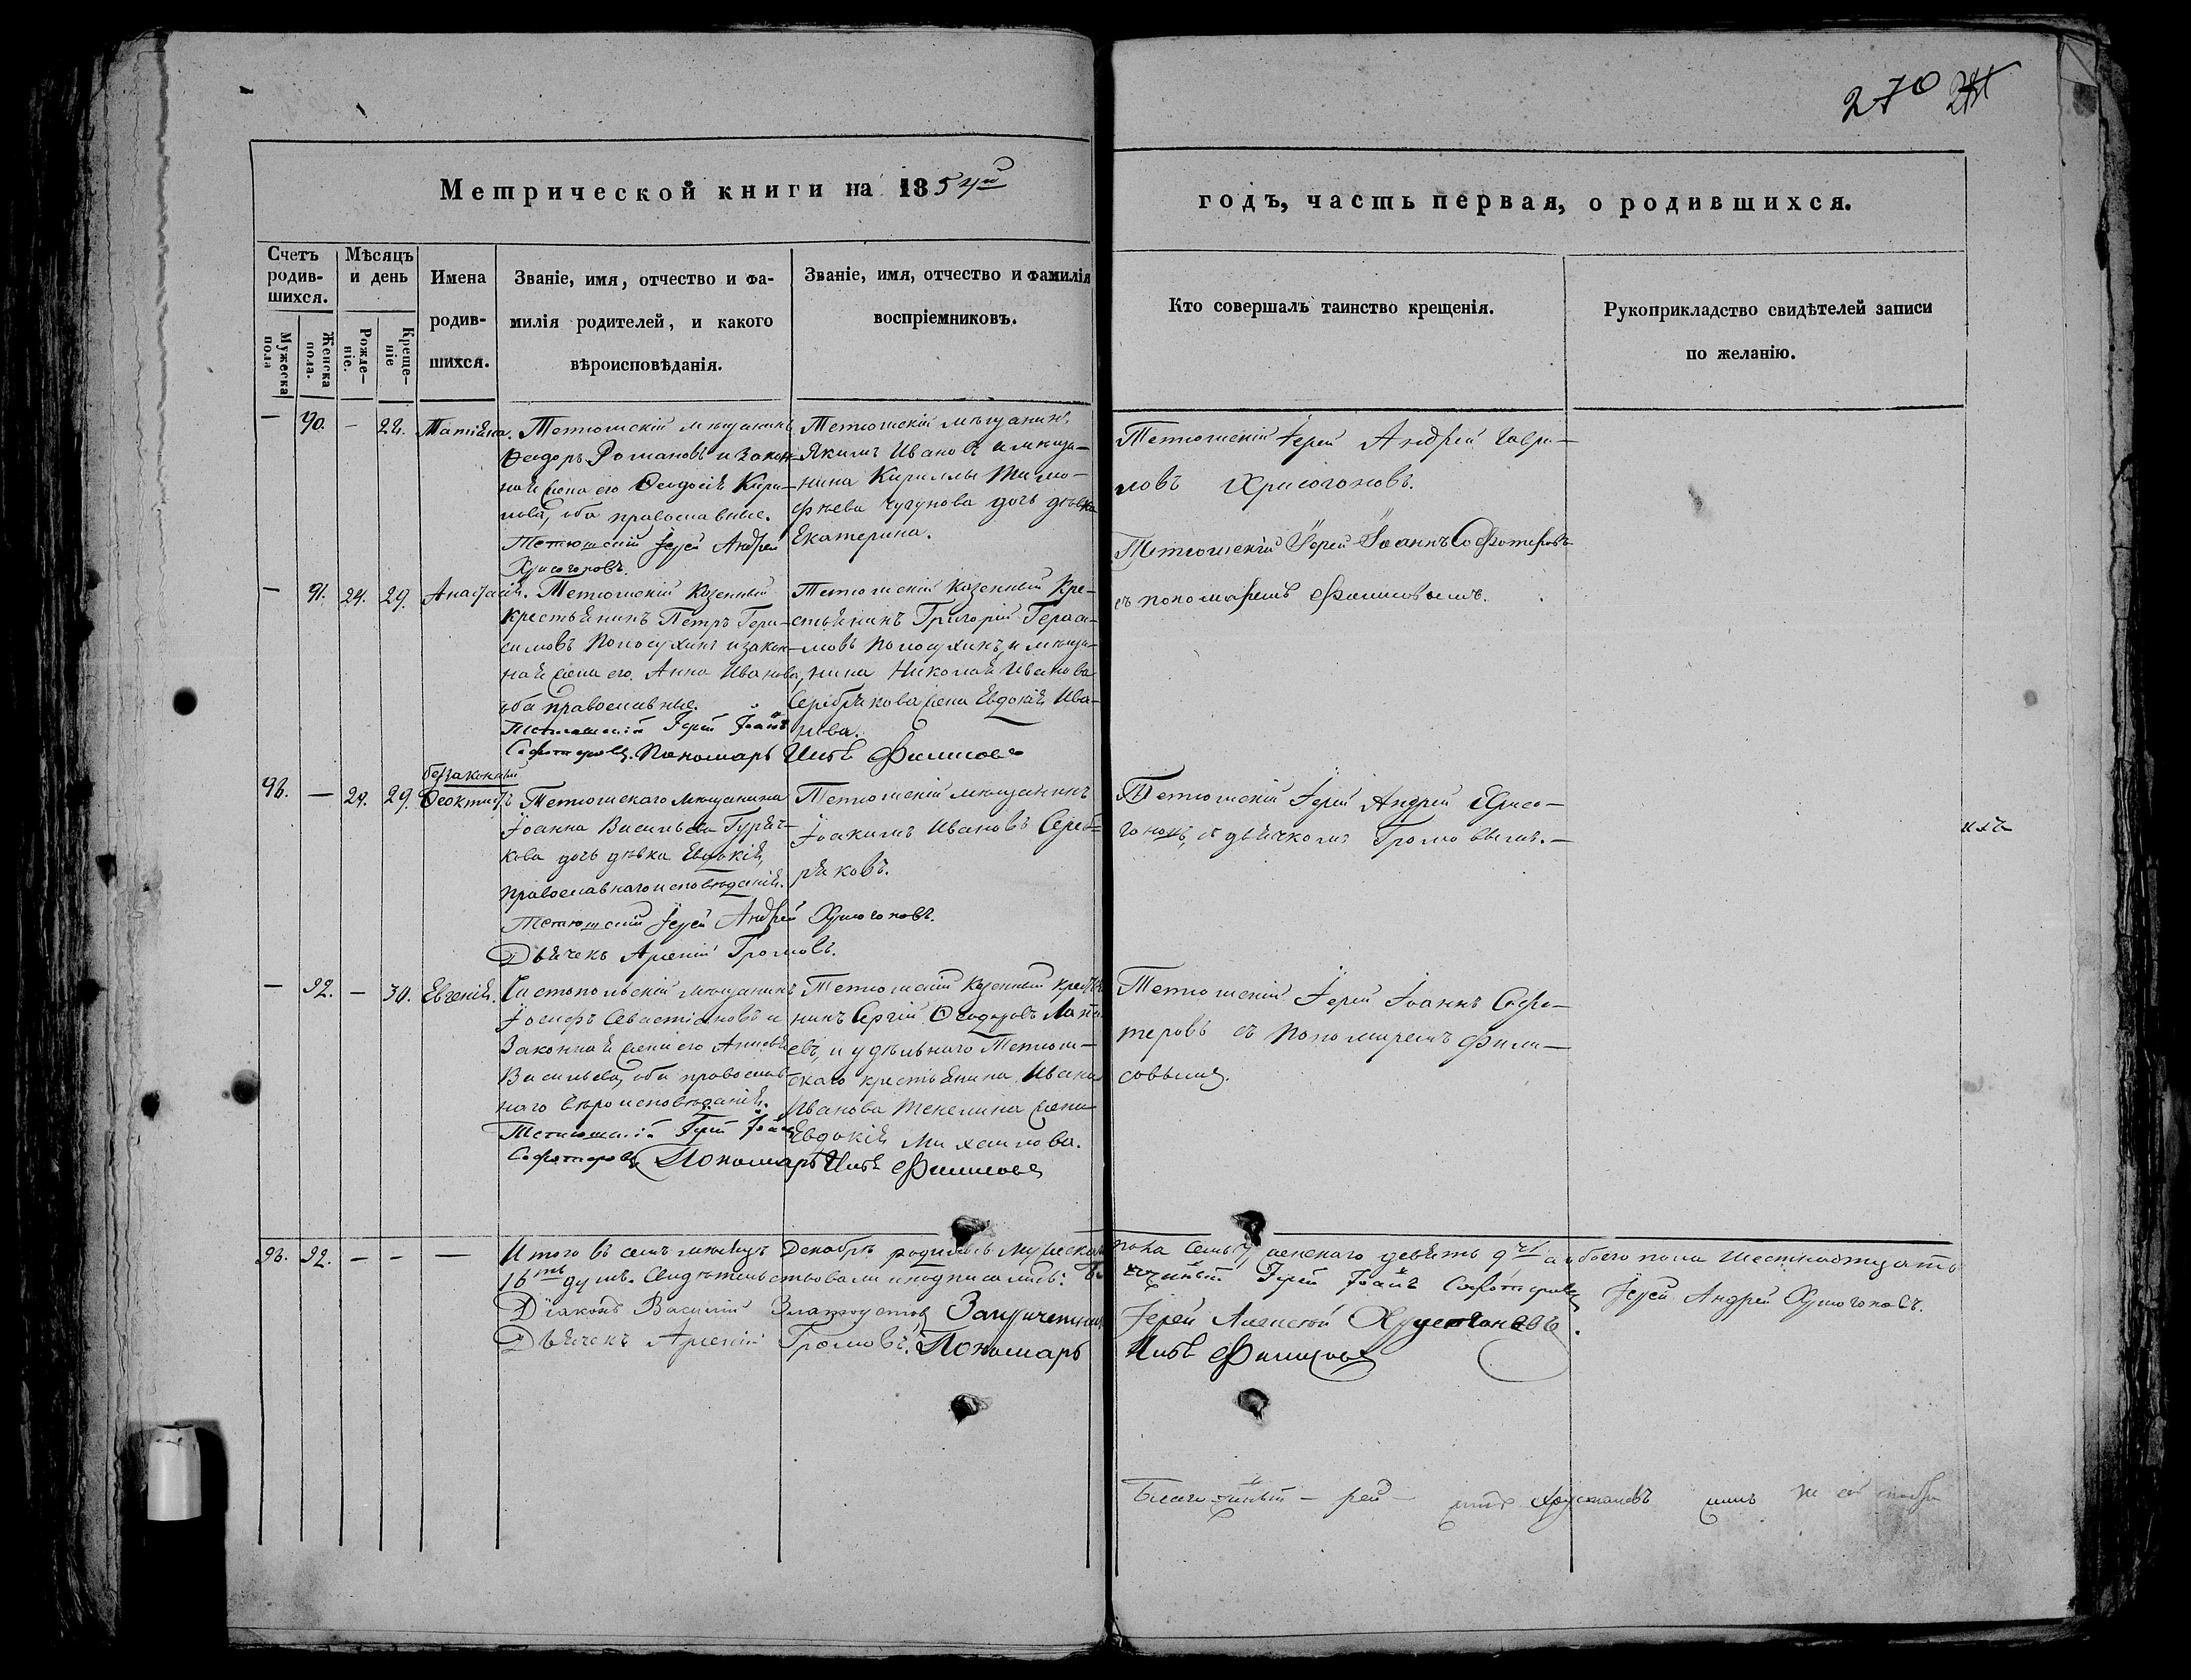 270
Метрической книги на 1854й
годъ, часть первая, о родившихся.
Счетъ родив-шихся.
Мужеска пола
Женска пола.
Мѣсяцъ и день
Рожде-ніе.
Креще-ніе
Имена родив-шихся.
Званіе, имя, отчество и фа-
милія родителей, и какого
вѣроисповѣданія.
Званіе, имя, отчество и фамилія
воспріемниковъ.
Кто совершалъ таинство крещенія.
Рукоприкладство свидѣтелей записи
по желанію.
— 90. — 22. Татіяна.
Тетюшскій мѣщанинъ
Ѳеодоръ Романовъ и закон-
ная жена его Ѳеодосія Кири-
лова, оба православные.
Тетюшскій Іерей Андрей
Хрисогоновъ.
Тетюшскій мѣщанинъ
Якимъ Ивановъ и мѣща-
нина Кириллы Тимо-
фѣева Чугунова дочь дѣвка
Екатерина.
Тетюшскій Іерей Андрей Гаври-
ловъ Хрисогоновъ.
— 91. 24. 29. Анастасія.
Тетюшскій казенный
крестьянинъ Петръ Гера-
симовъ Полосухинъ и закон-
ная жена его Анна Иванова,
оба православные.
Тетюшскій Іерей Іоаннъ
Софотеровъ. Пономарь Илья Филисовъ
Тетюшскій казенный кре-
стьянинъ Григорій Гераси-
мовъ Полосухинъ, и мѣща-
нина Николая Иванова
Серебрякова жена Евдокія Ива-
нова.
Тетюшскій Іерей Іоаннъ Софотеровъ
съ пономаремъ Филисовымъ.
96. — 24. 29. беззаконный Ѳеоктистъ
Тетюшскаго мѣщанина
Іоанна Васильева Гуряч-
кова дочь дѣвка Евдокія,
православнаго исповѣданія.
Тетюшскій Іерей Андрей Хрисогоновъ.
Дьячекъ Арсеній Громовъ.
Тетюшскій мѣщанинъ
Іоакимъ Ивановъ Сереб-
ряковъ.
Тетюшскій Іерей Андрей Хрисо-
гоновъ, съ дьячкомъ Громовымъ.—
— 92. — 30. Евгенія.
Чистопольскій мѣщанинъ
Іосифъ Севастіановъ и
законная жена его
Васильева, оба православ-
наго вѣроисповѣданія.
Тетюшскій Іерей Іоаннъ
Софотеровъ Пономарь Илья Филисовъ
Тетюшскій казенный кресть-
нинъ Сергій Ѳеодоровъ
и удѣльнаго Тетюш-
скаго крестьянина Ивана
Иванова жена
Евдокія Михаилова.
Тетюшскій Іерей Іоаннъ Софо-
теровъ съ пономаремъ Фили-
совымъ.
96. 92. — — —
Итого въ семъ мѣсяцѣ Декабрѣ родилось мужеска пола семь 7, женскаго девять 9 а обоего пола шестнадцать
16ть душъ. Свидѣтельствовали и подписались: Іерей Іоаннъ Софотеровъ Іерей Андрей Хрисогоновъ.
Діаконъ Василій Златоустовъ Іерей Алексѣй
Дьячекъ Арсеній Громовъ. Пономарь Илья Филисовъ